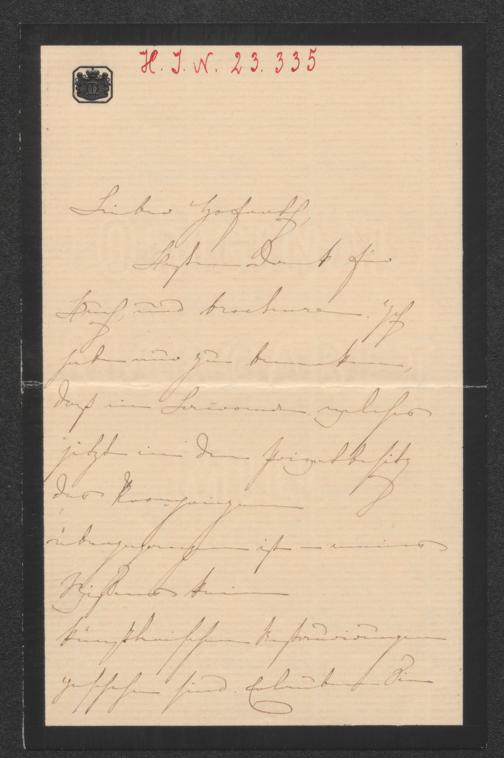 H. I. N. 23.335
Lieber Hofrath,
Besten Dank für
Buch und brochuren. Ich
habe nur zu bemerken,
daß in Lacroma, welches
jetzt in den Privatbesitz
des Kronprinzen
übergegangen ist – meines
Wissens keine
künstlerischen Restaurirungen
geschehen sind. Erlauben Sie